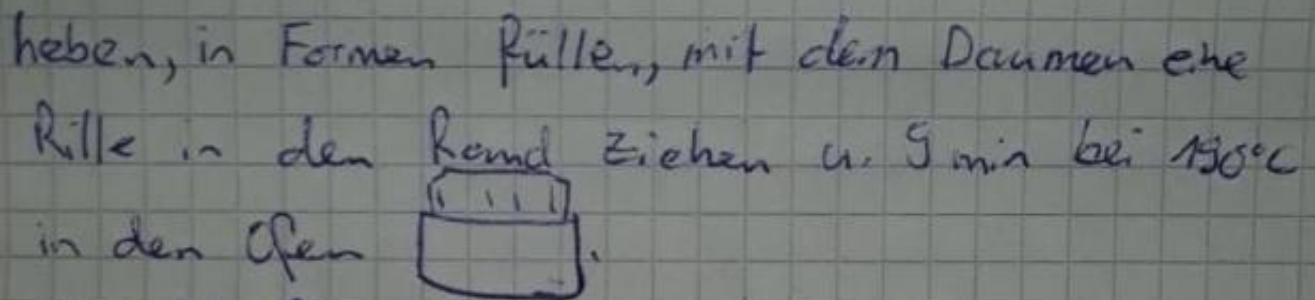 heben, in Formen füllen, mit dem Daumen eine
Rille in den Rand ziehen u. 9 min bei 190°C
in den Ofen .